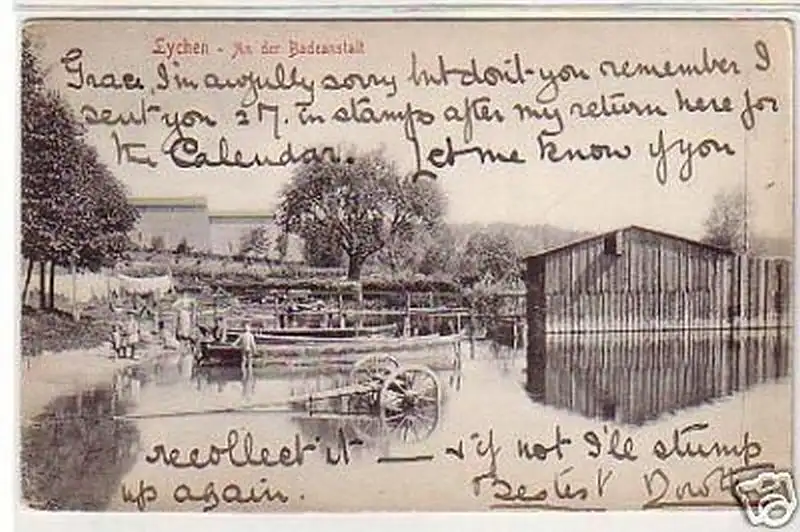 Lychen - An der Badeanstalt
Grace, I'm awfully sorry but don't you remember I
sent you 2 M. in stamps after my return here for
the Calendar. Let me know if you
recollect it — & if not I'll stump
up again. Bestest